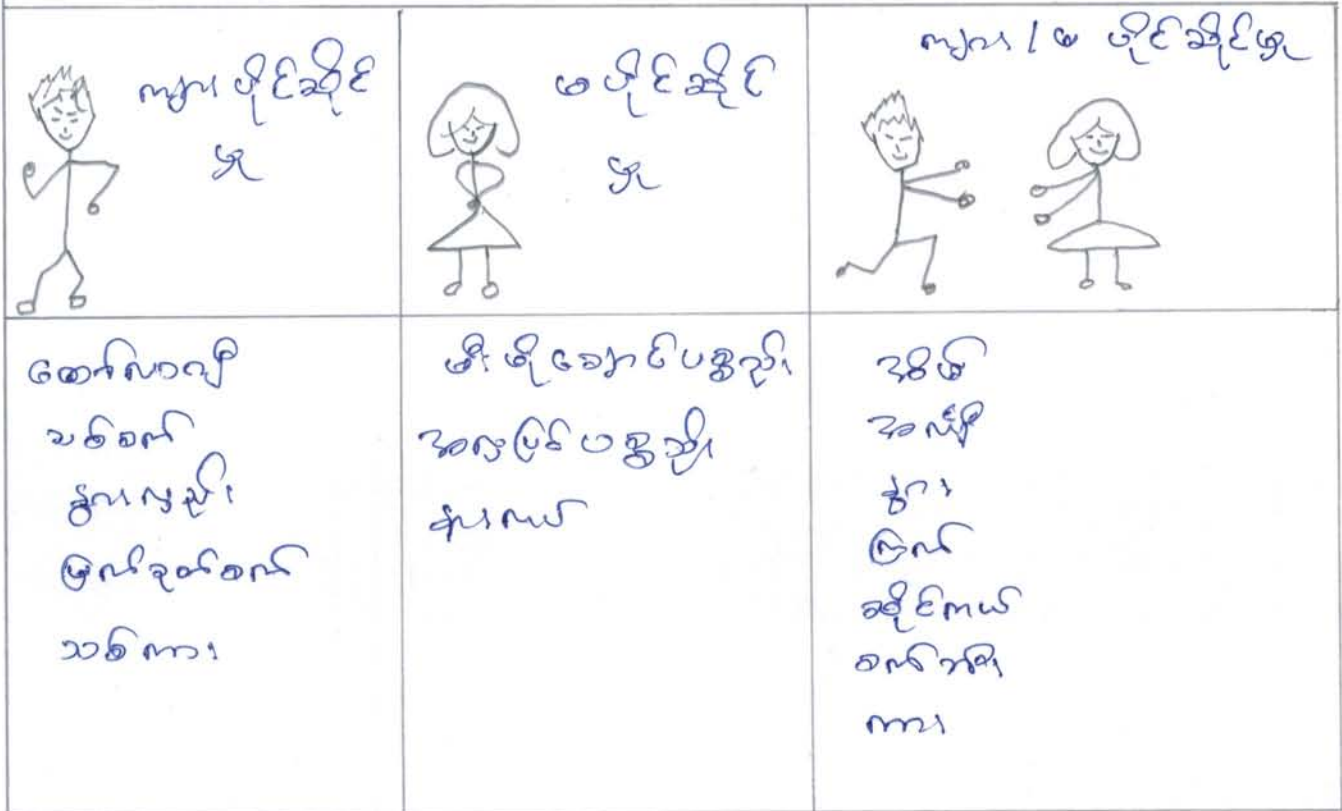 ကျား ပိုင်ဆိုင်
မှု
မ ပိုင်ဆိုင်
မှု
ကျား / မ ပိုင်ဆိုင်မှု
ထော်လာဂျီ
သစ်စက်
နွားလှည်း
မြက်ခုတ်စက်
သစ်ကား
မီးဖိုချောင်ပစ္စည်း
အလှပြင်ပစ္စည်း
အိမ်
နွား
ခြံ
ဆိုင်ကယ်
စက်ဘီး
ကား